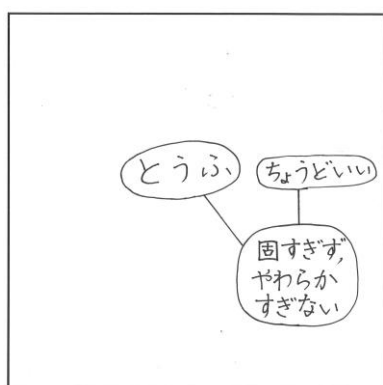 とうふ
ちょうどいい
固すぎず,
やわらか
すぎない